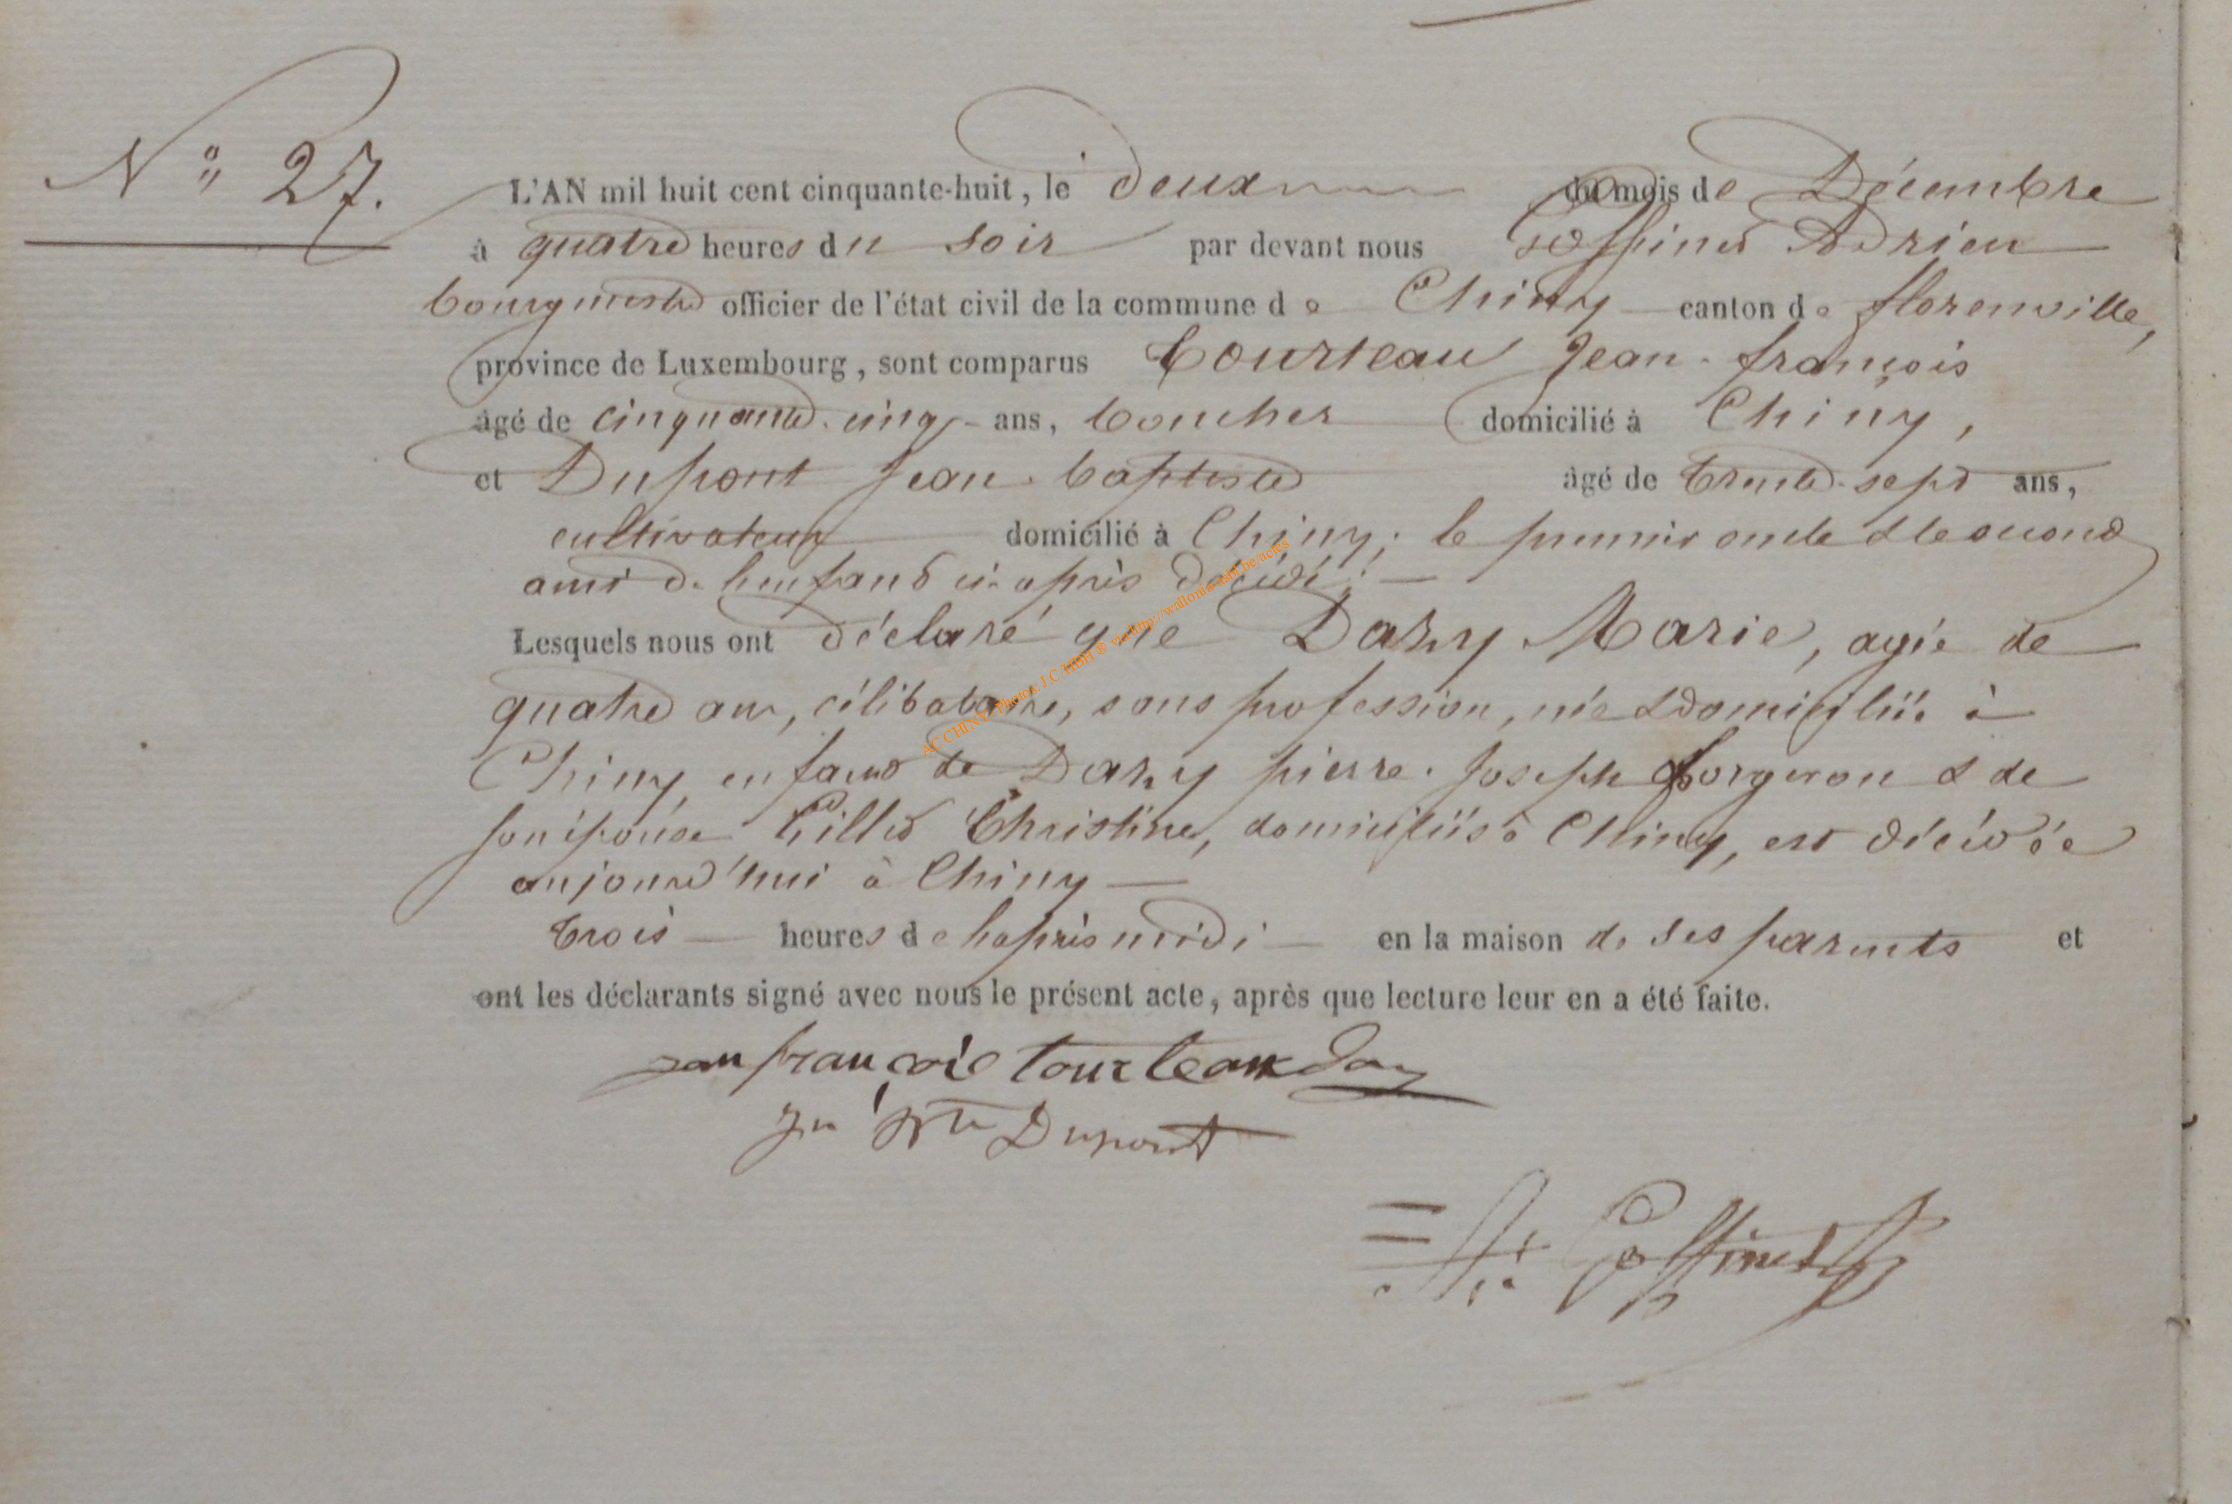 N° 27.
L'AN mil huit cent cinquante-huit, le deux du mois de Décembre
à quatre heures du soir par devant nous Goffinet Adrien
bourgmestre officier de l'état civil de la commune de Chiny canton de florenville,
province de Luxembourg, sont comparus Tourteau Jean-françois
âgé de cinquante-cinq ans, boucher domicilié à Chiny,
et Dupont Jean-baptiste âgé de trente-sept ans,
cultivateur domicilié à Chiny; le premier oncle & le second
ami de l'enfant ci-après décédé;
Lesquels nous ont déclaré que Dazy Marie, agée de
quatre ans, célibataire, sans profession, née & domiciliée à
Chiny, enfant de Dazy pierre-Joseph forgeron & de
son épouse Gillet Christine, domiciliés à Chiny, est décédée
aujourd'hui à Chiny
trois heures de l'après midi en la maison de ses parents et
ont les déclarants signé avec nous le présent acte, après que lecture leur en a été faite.
jean françois tourteaux
Jn Bte Dupont
Goffinet
AC CHINY Photos J.C. ® via http://wallonia-asbl.be/actes